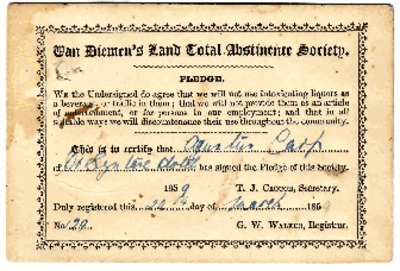 Van Diemen's Land Total Abstinence Society.
PLEDGE.
WE the Undersigned do agree that we will not use intoxicating liquors as
a beverage or traffic in them; that we will not provide them as an article
of entertainment, or for persons in our employment; and that in all
suitable ways we will discountenance their use throughout the community.
This is to certify that
of has signed the Pledge of this Society.
1859 T. J. CROUCH, Secretary.
Duly registered this 22 day of March 1859
No. 29. G. W. WALKER, Registrar.